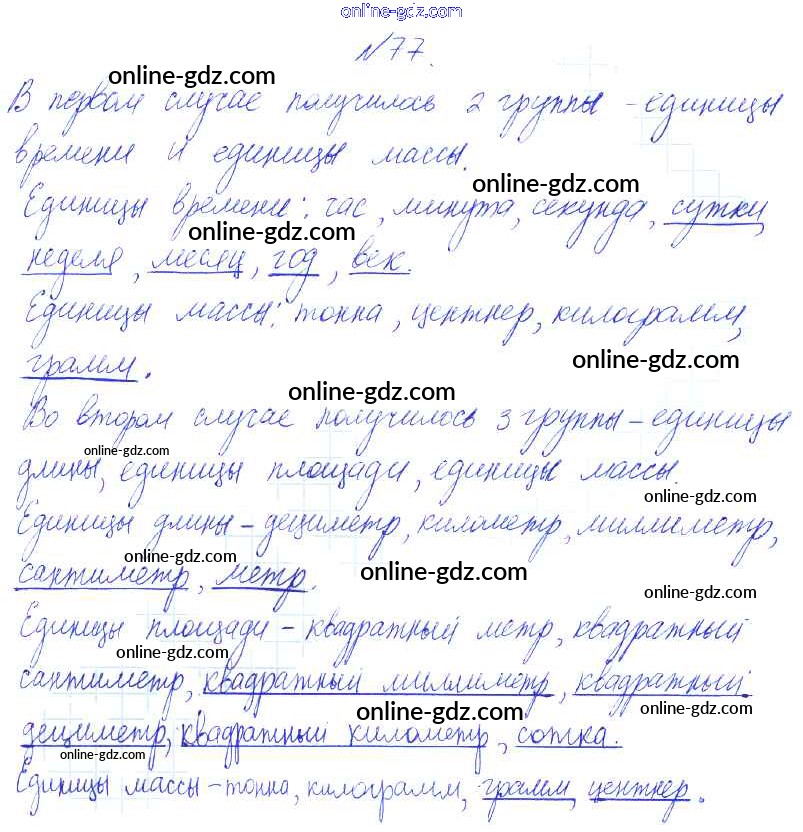 online-gdz.com
№77.
online-gdz.com
В первом случае получилось 2 группы - единицы
времени и единицы массы.
online-gdz.com
Единицы времени: час, минута, секунда, сутки,
online-gdz.com
неделя, месяц, год, век.
Единицы массы: тонна, центнер, килограмм,
online-gdz.com
грамм.
online-gdz.com
Во втором случае получилось 3 группы - единицы
online-gdz.com
длины, единицы площади, единицы массы.
online-gdz.com
Единицы длины - дециметр, километр, миллиметр,
online-gdz.com
online-gdz.com
сантиметр, метр.
online-gdz.com
Единицы площади - квадратный метр, квадратный
сантиметр, квадратный миллиметр, квадратный
online-gdz.com
online-gdz.com
дециметр, квадратный километр, сотка.
online-gdz.com
Единицы массы - тонна, килограмм, грамм, центнер.
online-gdz.com